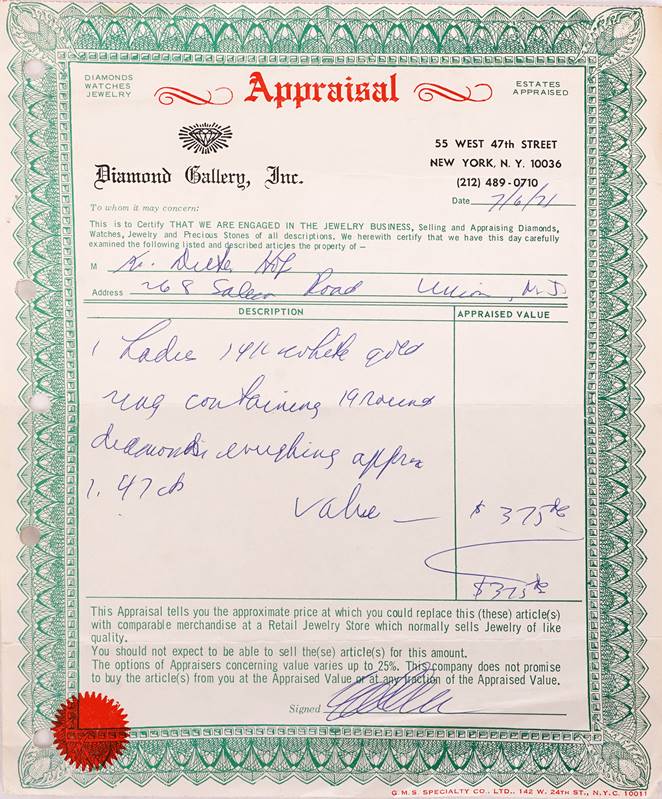 DIAMONDS
WATCHES
JEWELRY
Appraisal
ESTATES
APPRAISED
Diamond Gallery, Inc.
55 WEST 47th STREET
NEW YORK, N. Y. 10036
(212) 489-0710
To whom it may concern:
Date 7/6/71
This is to Certify THAT WE ARE ENGAGED IN THE JEWELRY BUSINESS, Selling and Appraising Diamonds,
Watches, Jewelry and Precious Stones of all descriptions. We herewith certify that we have this day carefully
examined the following listed and described articles the property of —
M K. Dieter
Address 268 Salem Road Union, N.J.
DESCRIPTION APPRAISED VALUE
1 Ladies 14K white gold
ring containing 19 round
diamonds weighing approx
1.47 cts
Value — $ 375
$ 375
This Appraisal tells you the approximate price at which you could replace this (these) article(s)
with comparable merchandise at a Retail Jewelry Store which normally sells Jewelry of like
quality.
You should not expect to be able to sell the(se) article(s) for this amount.
The options of Appraisers concerning value varies up to 25%. This company does not promise
to buy the article(s) from you at the Appraised Value or at any fraction of the Appraised Value.
Signed
G.M.S. SPECIALTY CO., LTD., 142 W. 24TH ST., N.Y.C. 10011